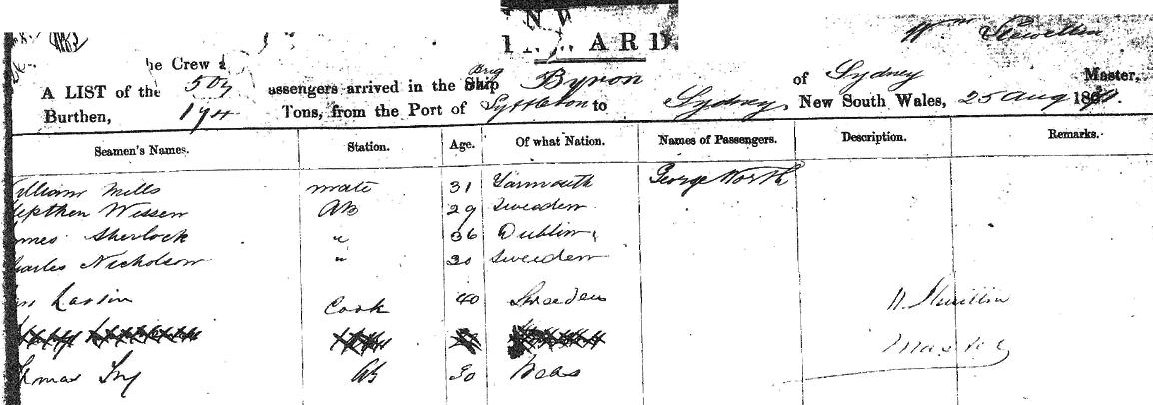 INWARD.
Wm Llewellin
he Crew &
A LIST of the 507 assengers arrived in the Ship Brig Byron of Sydney Master,
Burthen, 194 Tons, from the Port of Lyttelton to Sydney, New South Wales, 25 Aug 186
Seamen's Names. Station. Age. Of what Nation. Names of Passengers. Description. Remarks.
illiam Mills mate 31 Yarmouth George North
epthen Wissen AB 29 Sweeden
ames Sherlock " 36 Dublin
harles Nicholson " 30 Sweeden
Lassin Cook 40 Sweeden W. Llewellin
Master
homas AB 30